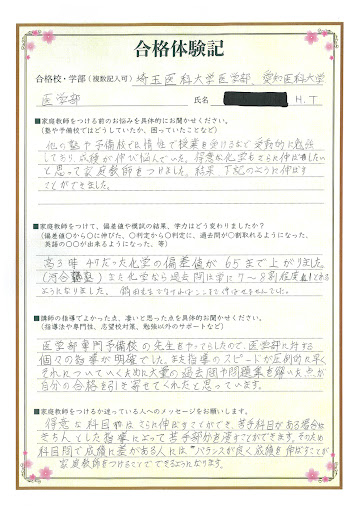 合格体験記
合格校・学部（複数記入可）埼玉医科大学医学部、愛知医科大学
医学部 氏名 H.T
■家庭教師をつける前のお悩みを具体的にお聞かせください。
（塾や予備校ではどうしていたか、困っていたことなど）
他の塾や予備校では惰性で授業を受けるなど受動的に勉強
しており、成績が伸び悩んでいた。得意な化学もさらに伸ばしたい
と思って家庭教師をつけました。結果、下記のように伸ばす
ことができました。
■家庭教師をつけて、偏差値や模試の結果、学力はどう変わりましたか？
（偏差値〇から〇に伸びた、〇判定から〇判定に、過去問が〇割取れるようになった、
英語の〇〇が出来るようになった、等）
高3時 47だった化学の偏差値が 65まで上がりました。
（河合塾）また化学なら過去問は常に7〜8割程度とれる
ようになりました。
■講師の指導でよかった点、凄いと思った点を具体的にお聞かせください。
（指導法や専門性、志望校対策、勉強以外のサポートなど）
医学部専門予備校の先生をやってらしたので、医学部に対する
個々の指導が明確でした。また指導のスピードが圧倒的に早く
それについていくために大量の過去問や問題集を解いた点が
自分の合格を引き寄せてくれたと思っています。
■家庭教師をつけるか迷っている人へのメッセージをお願いします。
得意な科目はさらに伸ばすことができ、苦手科目がある場合は
きちんとした指導によって苦手部分を潰すことができます。そのため
科目間で成績に差がある人にはバランスが良く成績を伸ばすことが
家庭教師をつけることでできるようになります。